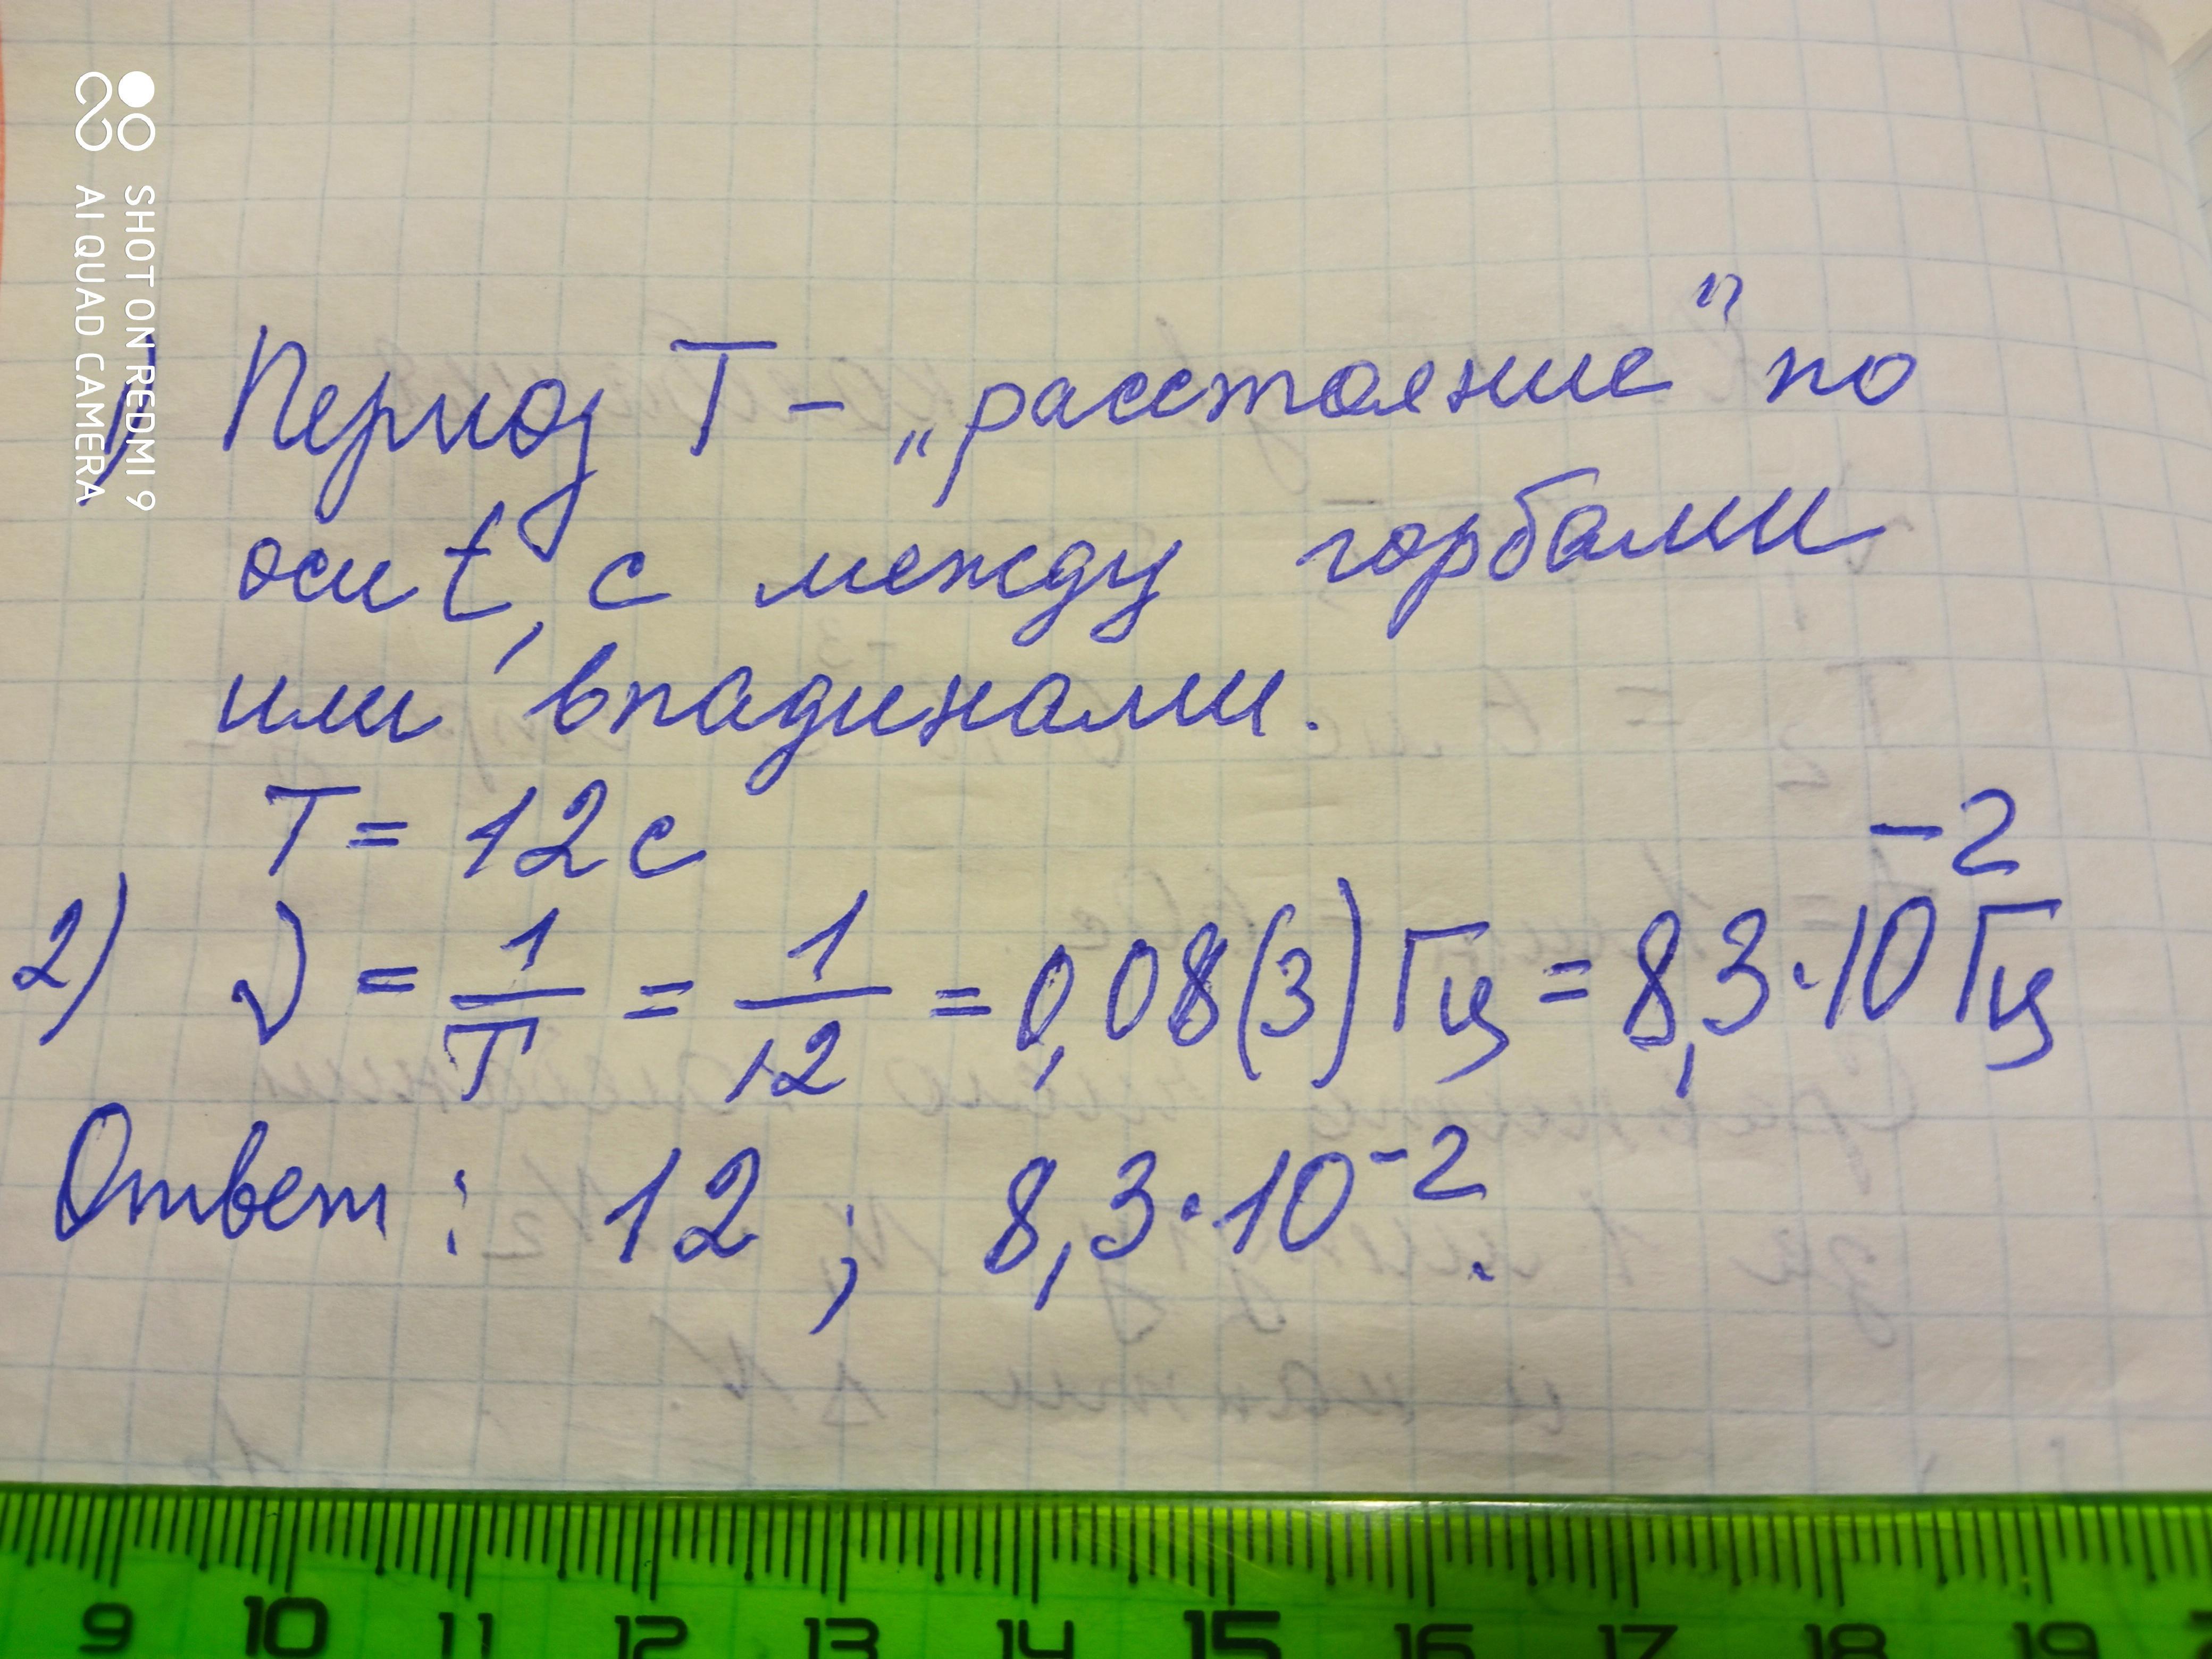 SHOT ON REDMI 9
AI QUAD CAMERA
1) Период T – „расстояние” по
оси t, с между горбами
или впадинами.
T = 12 с
2) ν = 1/T = 1/12 = 0,08(3) Гц = 8,3·10⁻² Гц
Ответ: 12 ; 8,3·10⁻².
9 10 11 12 13 14 15 16 17 18 19